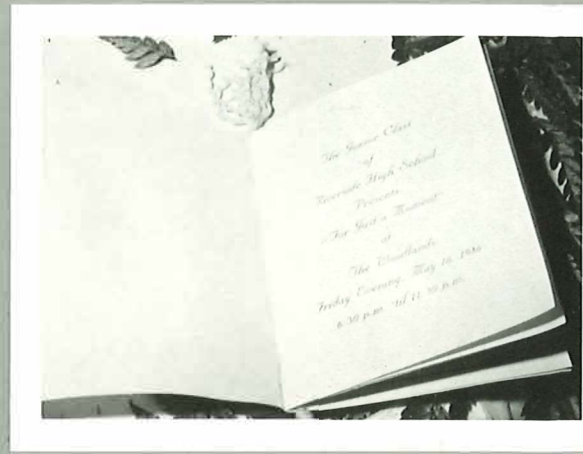 The Junior Class
of
Riverside High School
Presents
"For Just a Moment"
at
The Woodlands
Friday Evening, May 16, 1986
6:30 p.m. 'til 11:30 p.m.